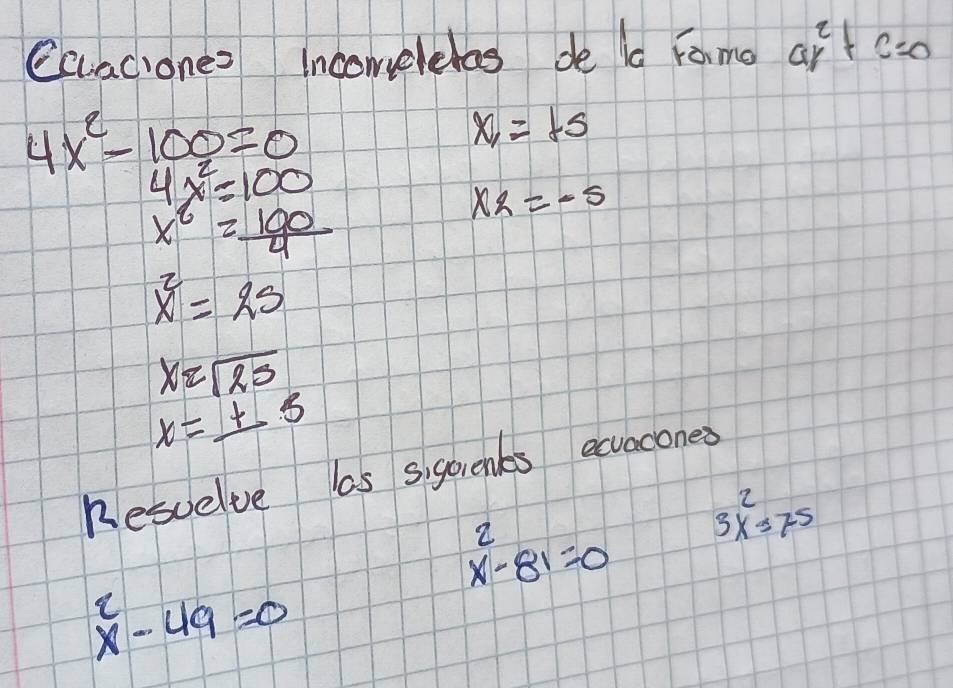 Ecuaciones Incompletas de la Forma ax² + c=0
4x² - 100 = 0
4x² = 100
x² = 100/4
x² = 25
x = √25
x = ± 5
x₁ = +5
x2 = -5
Resuelve las siguientes ecuaciones
x² - 49 = 0
x² - 81 = 0
3x² = 75